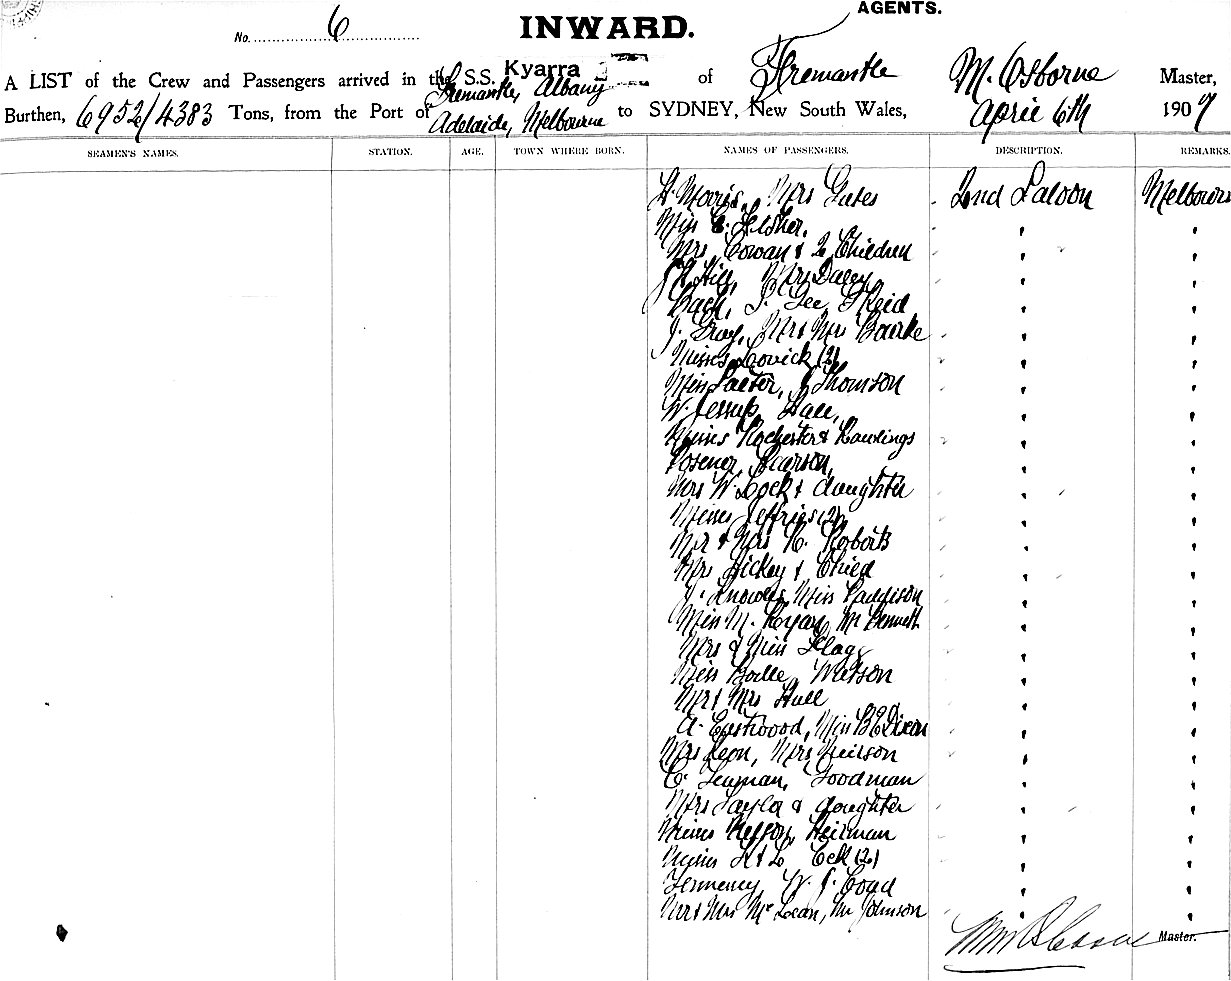 AGENTS.
INWARD.
No. 6
A LIST of the Crew and Passengers arrived in the S.S. Kyarra of Fremantle M. Osborne Master,
Burthen, 6952/4383 Tons, from the Port of Fremantle, Albany Adelaide, Melbourne to SYDNEY, New South Wales, April 6th 1907
SEAMEN'S NAMES. STATION. AGE. TOWN WHERE BORN. NAMES OF PASSENGERS. DESCRIPTION. REMARKS.
H. Morris, Mrs Gates 2nd Saloon Melbourne
Miss E. Fisher, "
Mrs Cowan & 2 Children "
Hill, Mrs Daley "
Cash, J. Gee, Reid "
J. Gray, Mr & Mrs Bourke "
Misses Lovick (2) "
Miss Salter, J Thomson "
W. Jessup, Hall, "
Misses Rochester & Rawlings "
Posener, Pearson, "
Mrs W. Cock & daughter "
Misses Jeffries (2) "
Mr & Mrs R. Roberts "
Mrs Hickey & Child "
J. Knowles, Miss Paddison "
Miss M. Hogan, Mr Bennett "
Mrs & Miss Flagg "
Miss Watson "
Mr & Mrs Hall "
A. Eastwood, Miss B E Dixon "
Mrs Leon, Mrs Neilson "
C. Goodman "
Mrs Taylor & daughter "
Misses Heilman "
Misses Eck (2) "
W. J. Coad "
Mr & Mrs McLean, Mr Johnson "
Master.